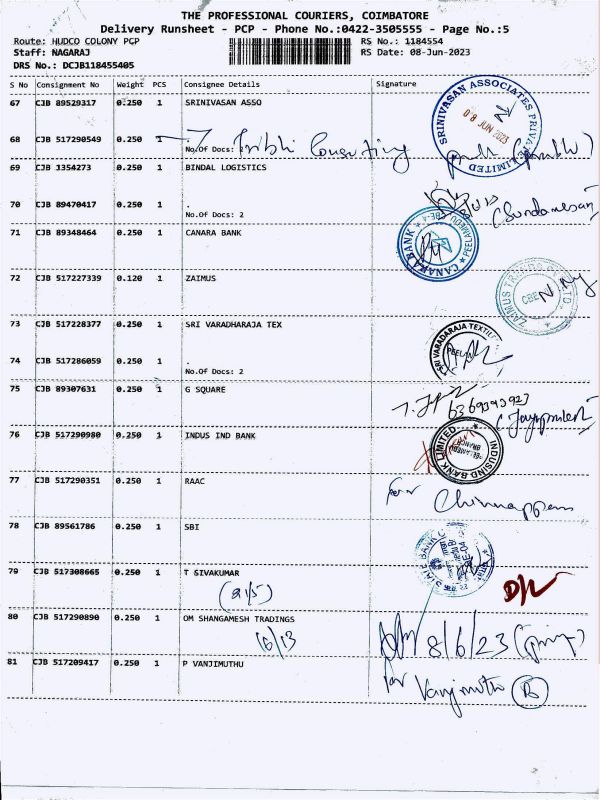 THE PROFESSIONAL COURIERS, COIMBATORE
Delivery Runsheet - PCP - Phone No.:0422-3505555 - Page No.:5
Route: HUDCO COLONY PCP RS No.: 1184554
Staff: NAGARAJ RS Date: 08-Jun-2023
DRS No.: DCJB118455405
S No Consignment No Weight PCS Consignee Details Signature
67 CJB 89529317 0.250 1 SRINIVASAN ASSO
SRINIVASAN ASSOCIATES PRIVATE LIMITED
08 JUN 2023
68 CJB 517290549 0.250 1
No.Of Docs: 2
Consulting
69 CJB 3354273 0.250 1 BINDAL LOGISTICS
70 CJB 89470417 0.250 1 .
No.Of Docs: 2
(Sundaresan)
71 CJB 89348464 0.250 1 CANARA BANK
CANARA BANK
PEELAMEDU
72 CJB 517227339 0.120 1 ZAIMUS
ZAIMUS
CBE
73 CJB 517228377 0.250 1 SRI VARADHARAJA TEX
SRI VARADARAJA TEXTIL
74 CJB 517286059 0.250 1 .
No.Of Docs: 2
75 CJB 89307631 0.250 1 G SQUARE
76 CJB 517290980 0.250 1 INDUS IND BANK
INDUSIND BANK LIMITED
77 CJB 517290351 0.250 1 RAAC
for Chinnappan
78 CJB 89561786 0.250 1 SBI
STATE BANK
79 CJB 517308665 0.250 1 T SIVAKUMAR
(21/5)
D/L
80 CJB 517290890 0.250 1 OM SHANGAMESH TRADINGS
16/13
8/6/23
81 CJB 517209417 0.250 1 P VANJIMUTHU
for Vanjimuthu